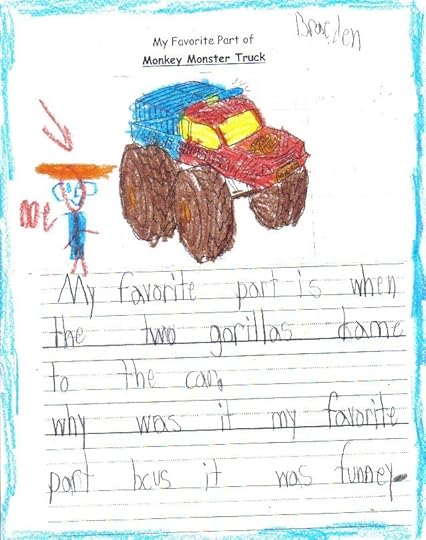 Braeden
My Favorite Part of
Monkey Monster Truck
My favorite part is when
the two gorillas kame
to the car.
why was it my favorite
part bcus it was funney.